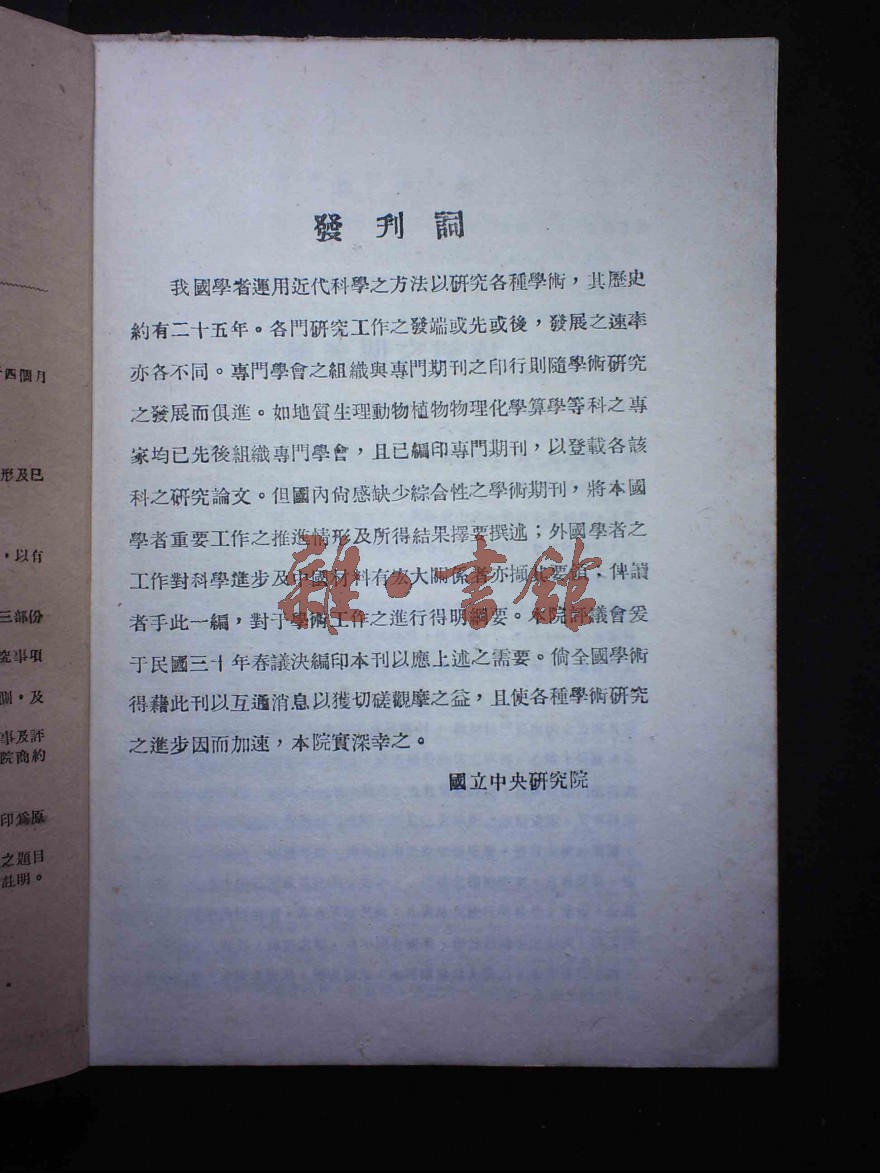 發刊詞
我國學者運用近代科學之方法以研究各種學術，其歷史
約有二十五年。各門研究工作之發端或先或後，發展之速率
亦各不同。專門學會之組織與專門期刊之印行則隨學術研究
之發展而俱進。如地質生理動物植物物理化學算學等科之專
家均已先後組織專門學會，且已編印專門期刊，以登載各該
科之研究論文。但國內尙感缺少綜合性之學術期刊，將本國
學者重要工作之推進情形及所得結果擇要撰述；外國學者之
工作對科學進步及中國材料有宏大關係者亦摘其要領，俾讀
者手此一編，對于學術工作之進行得明綱要。本院評議會爰
于民國三十年春議決編印本刊以應上述之需要。倘全國學術
得藉此刊以互通消息以獲切磋觀摩之益，且使各種學術研究
之進步因而加速，本院實深幸之。
國立中央研究院
雜·書館
四個月
形及已
，以有
三部份
究事項
期，及
事及評
院商約
印爲原
之題目
註明。